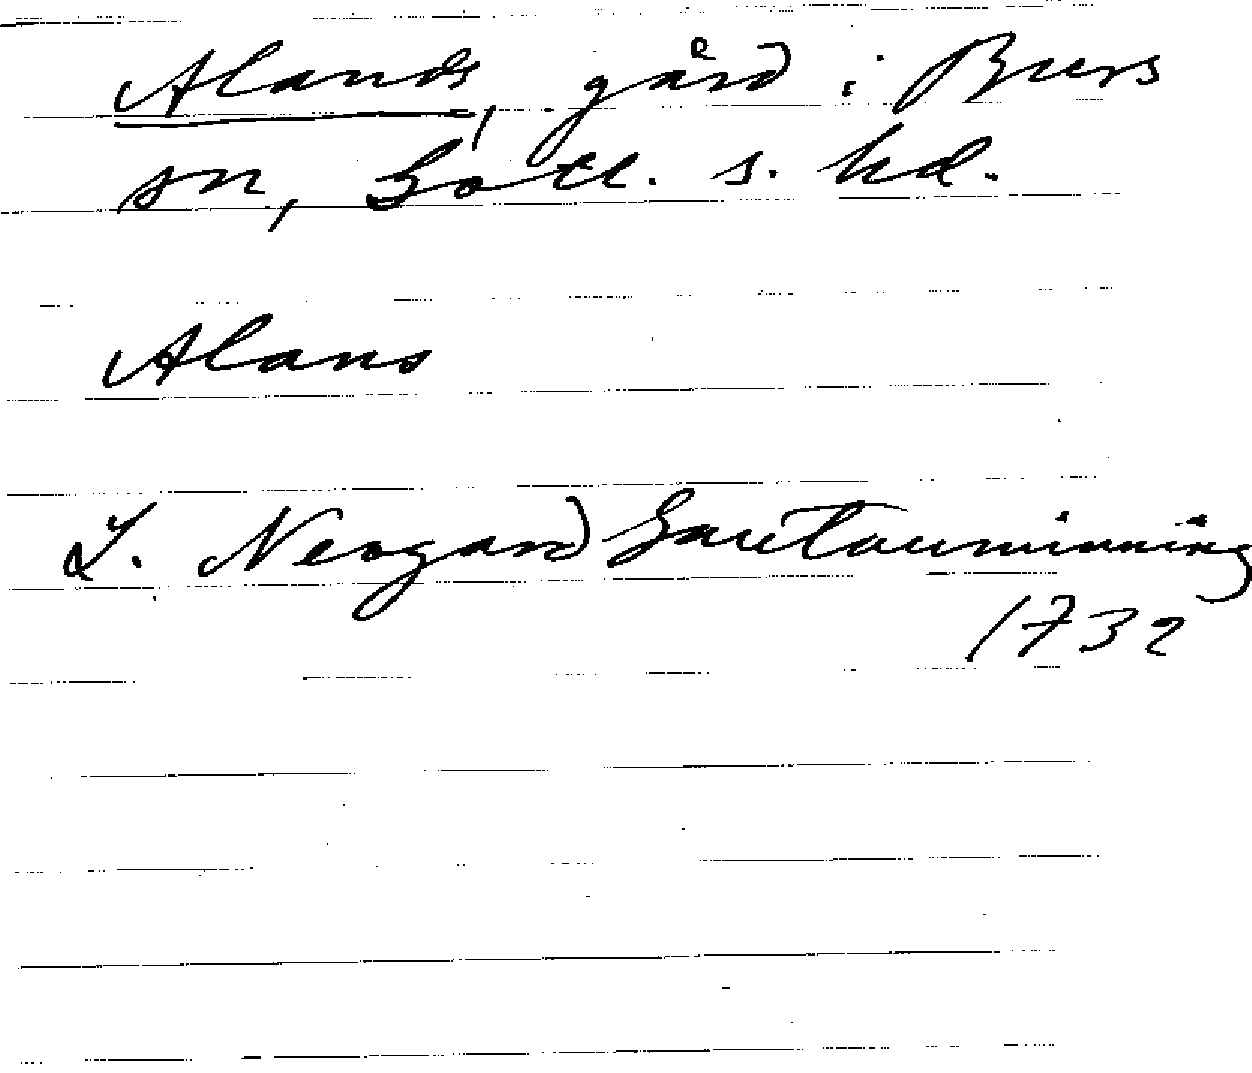 Alands, gård i Burs
sn, Gotl. s. hd.
Alans
J. Neogard Gautauminning
1732